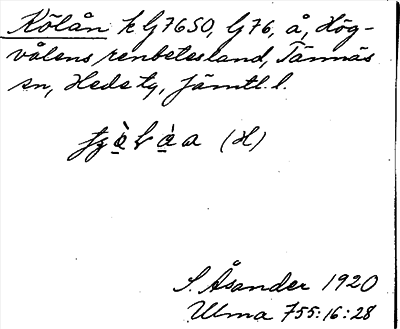 Kölån k G76SO, G76, å, Hög-
vålens renbetesland, Tännäs
sn, Hede tg, Jämtl. l.
(H)
S. Åsander 1920
Ulma 755:16:28